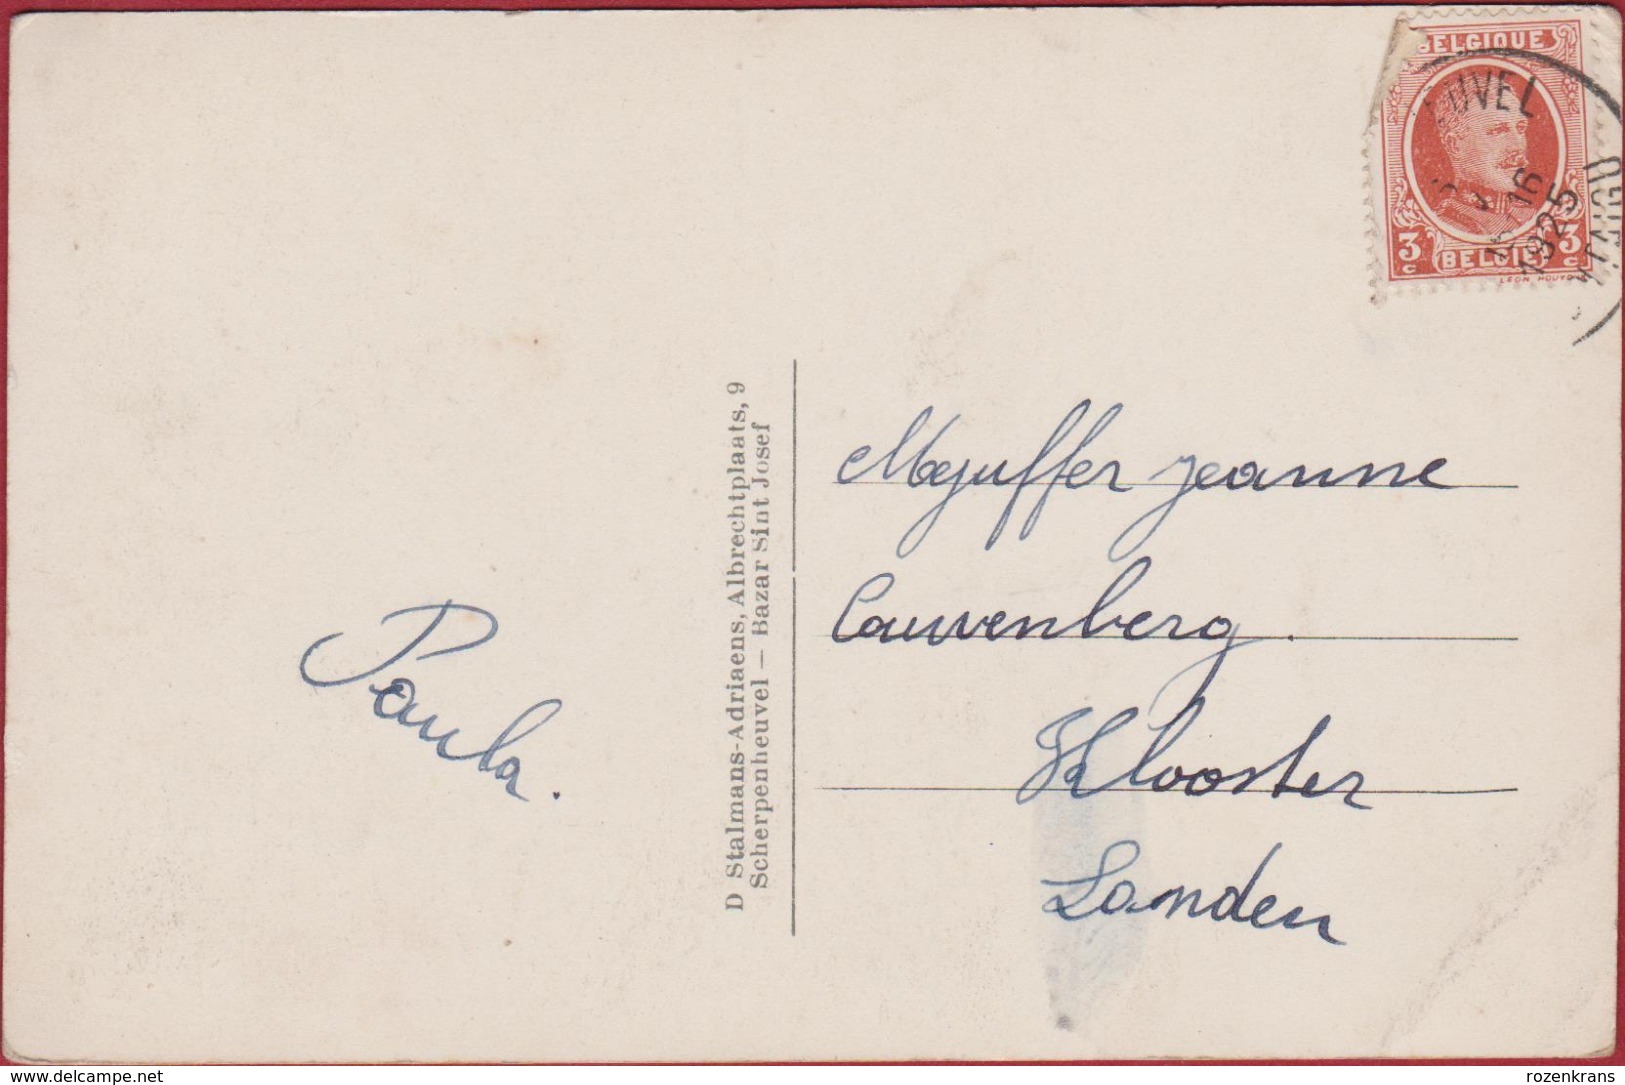 BELGIQUE
3 c
3 c
BELGIË
LEON HOUYO
1925
D Stalmans-Adriaens, Albrechtplaats, 9
Scherpenheuvel — Bazar Sint Josef
Mejuffer Jeanne
Cauwenberg.
Klooster
Landen
Paula.
www.delcampe.net
rozenkrans